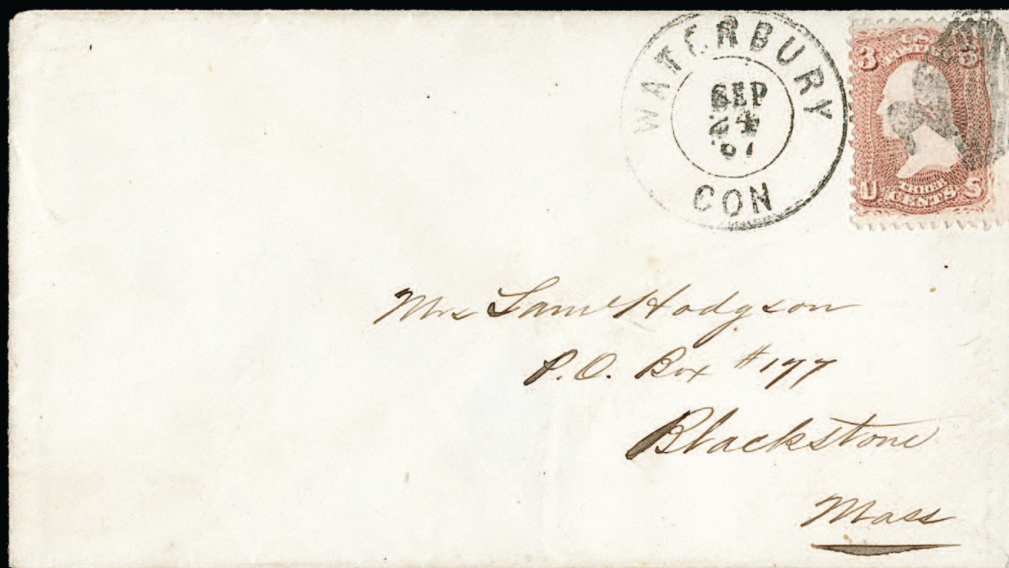 WATERBURY
SEP
24
67
CON
3 3
U CENTS S
Mrs Saml Hodgson
P.O. Box #177
Blackstone
Mass